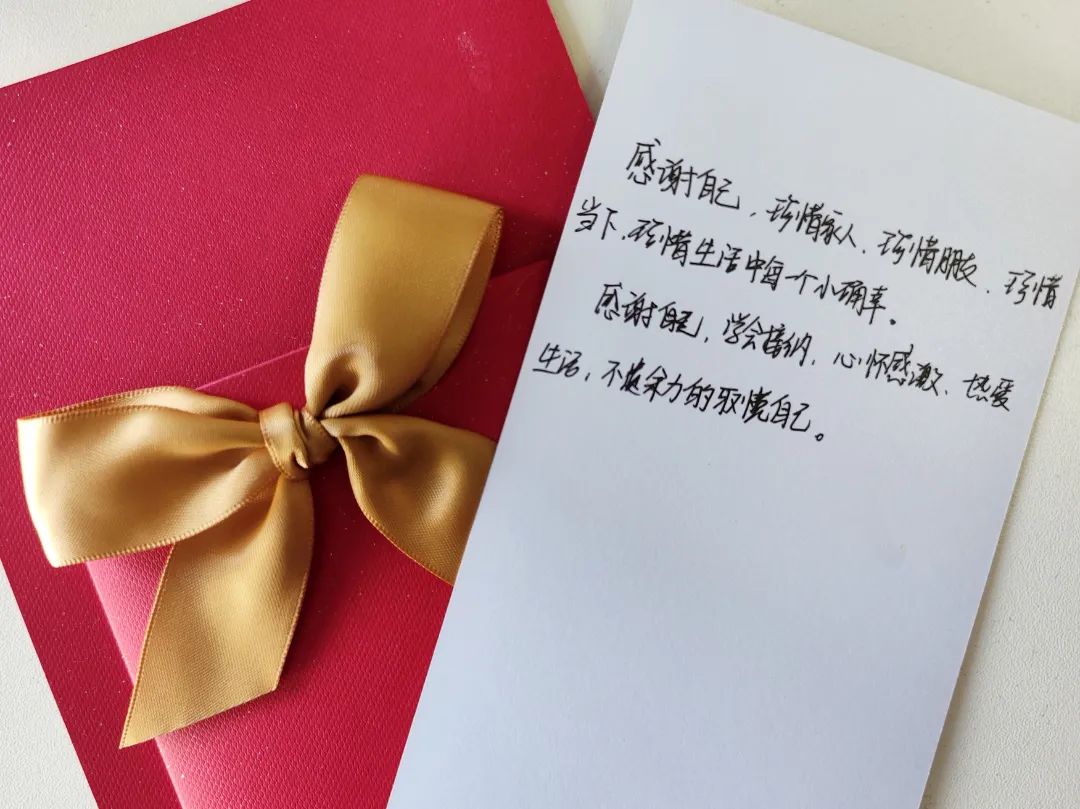 感谢自己，珍惜家人、珍惜朋友、珍惜
当下、珍惜生活中每一个小确幸。
感谢自己，学会接纳，心怀感激、热爱
生活，不遗余力的取悦自己。